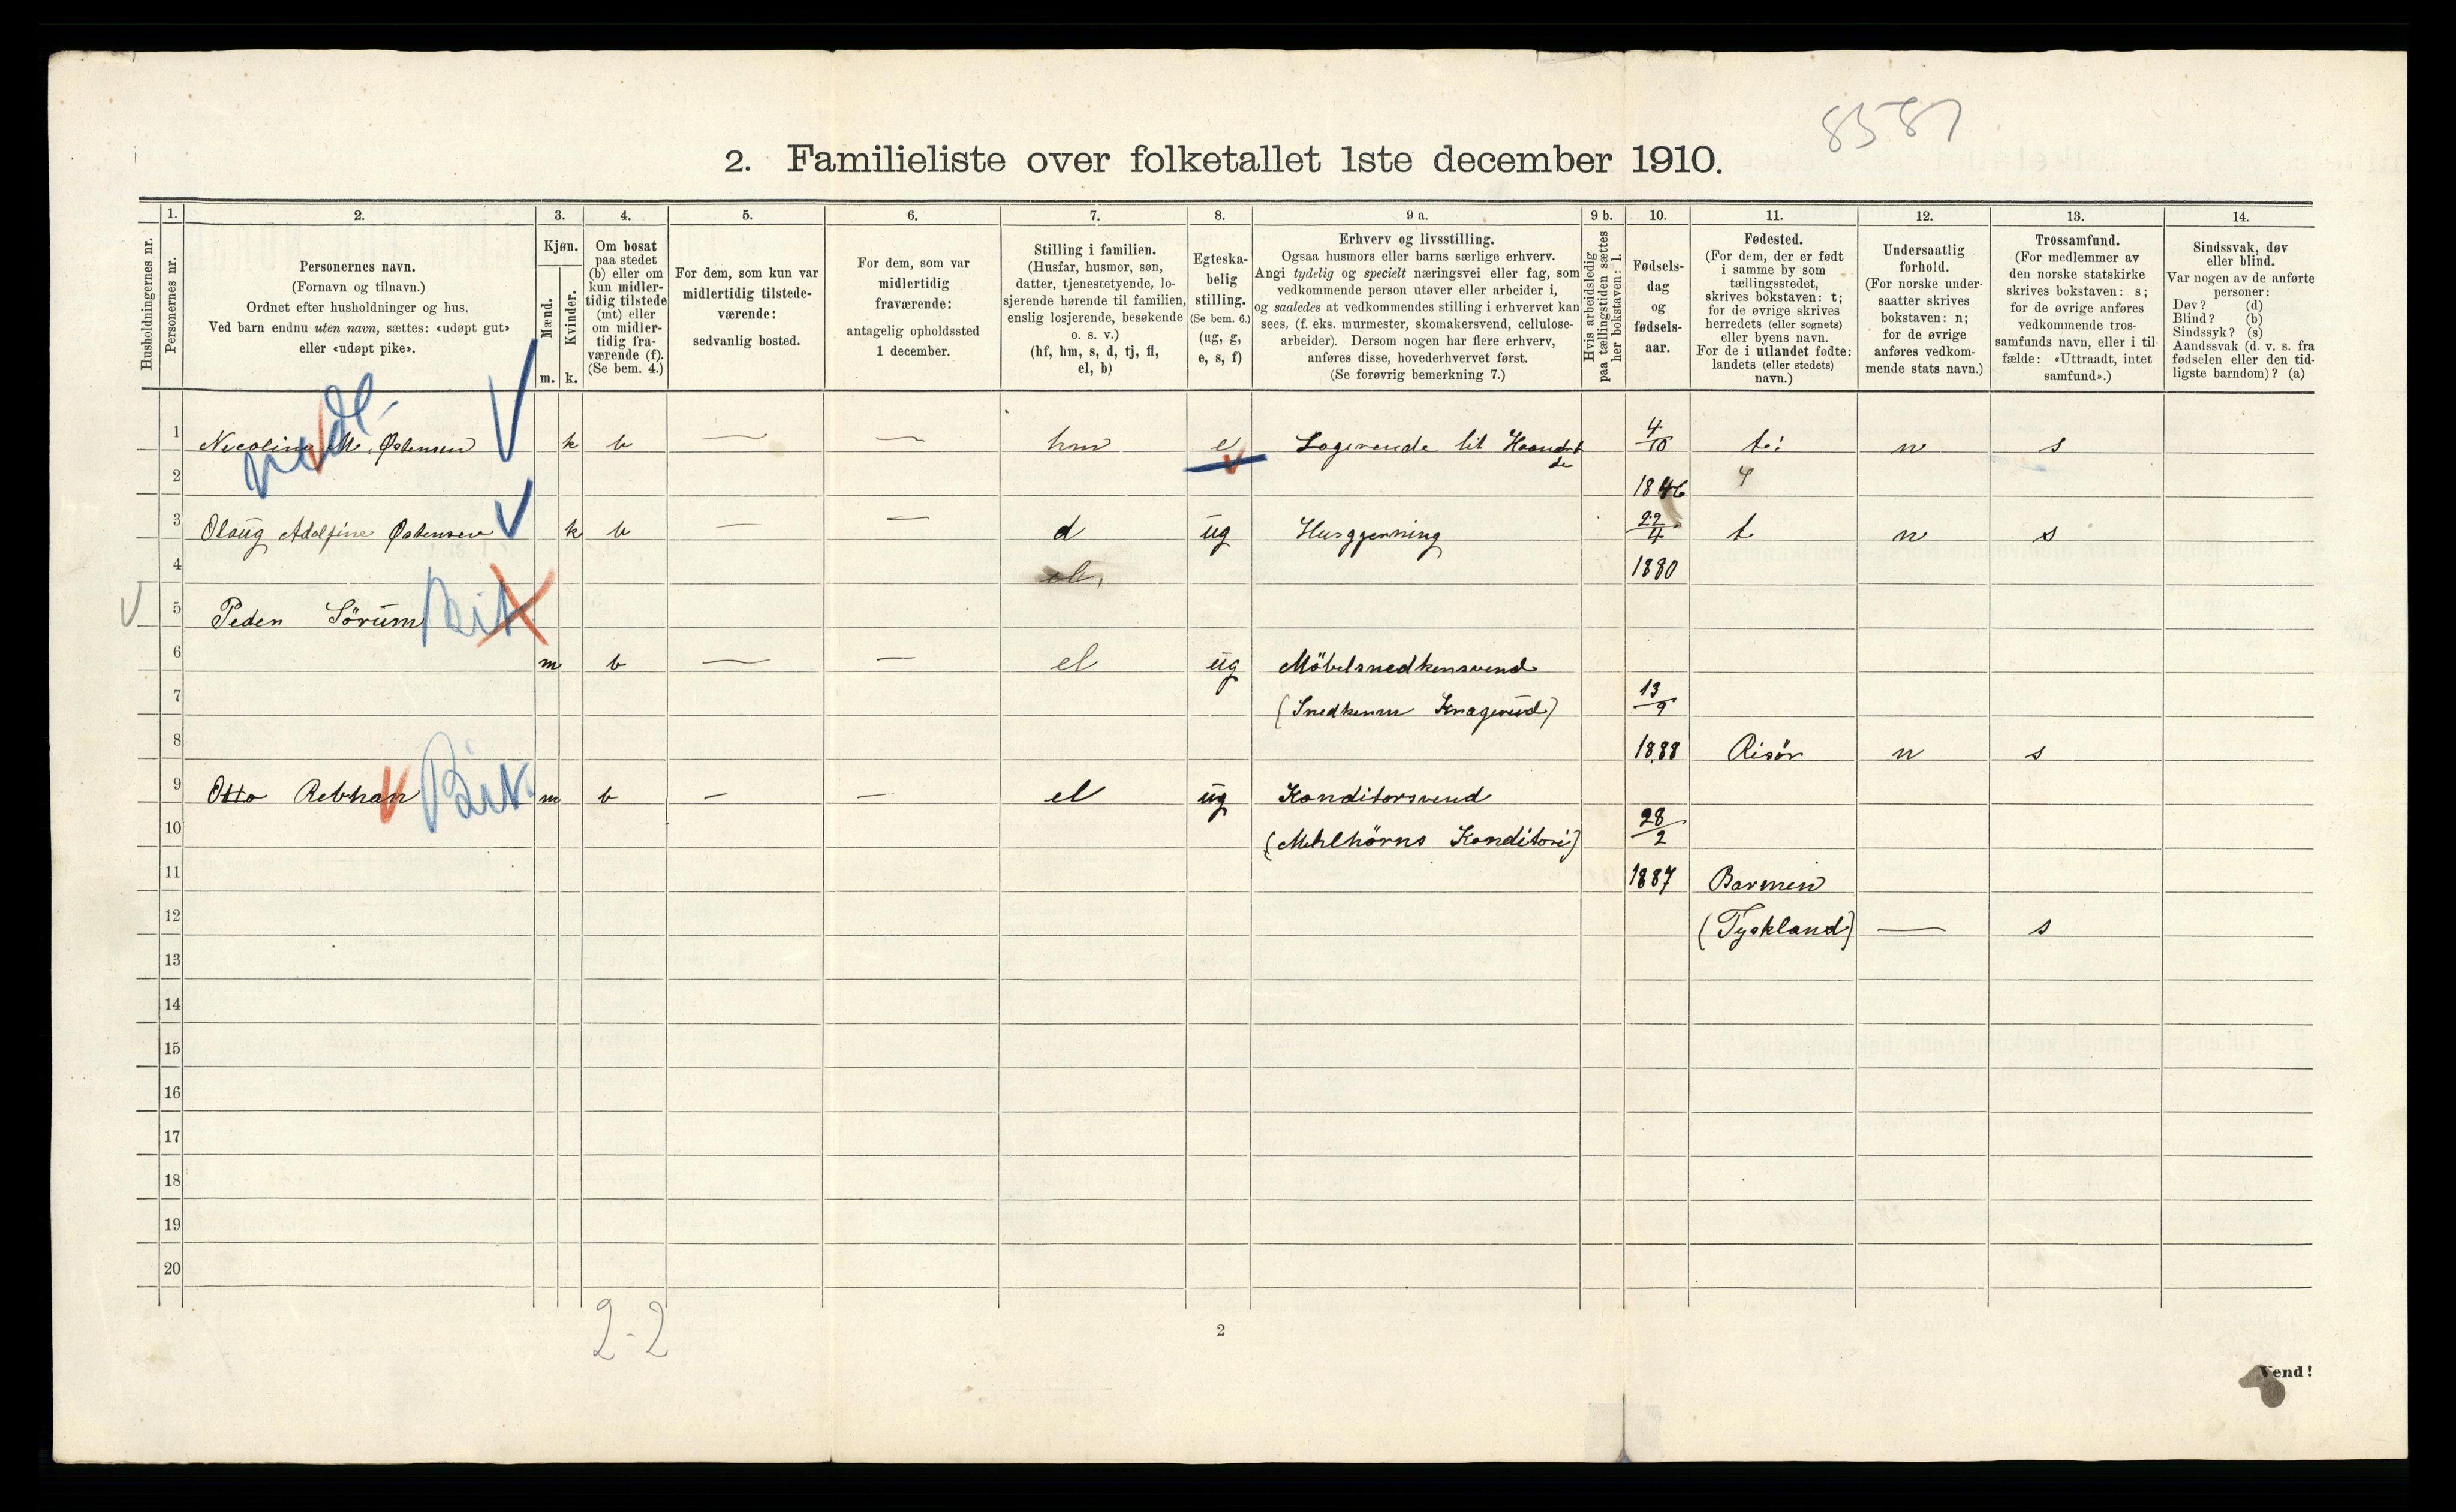 8587
2. Familieliste over folketallet 1ste december 1910.
1. 2. 3. 4. 5. 6. 7. 8. 9 a. 9 b. 10. 11. 12. 13. 14.
Husholdningernes nr.
Personernes nr.
Personernes navn.
(Fornavn og tilnavn.)
Ordnet efter husholdninger og hus.
Ved barn endnu uten navn, sættes: «udøpt gut»
eller «udøpt pike».
Kjøn.
Mænd.
Kvinder.
m. k.
Om bosat
paa stedet
(b) eller om
kun midler-
tidig tilstede
(mt) eller
om midler-
tidig fra-
værende (f).
(Se bem. 4.)
For dem, som kun var
midlertidig tilstede-
værende:
sedvanlig bosted.
For dem, som var
midlertidig
fraværende:
antagelig opholdssted
1 december.
Stilling i familien.
(Husfar, husmor, søn,
datter, tjenestetyende, lo-
sjerende hørende til familien,
enslig losjerende, besøkende
o. s. v.)
(hf, hm, s, d, tj, fl,
el, b)
Egteska-
belig
stilling.
(Se bem. 6.)
(ug, g,
e, s, f)
Erhverv og livsstilling.
Ogsaa husmors eller barns særlige erhverv.
Angi tydelig og specielt næringsvei eller fag, som
vedkommende person utøver eller arbeider i,
og saaledes at vedkommendes stilling i erhvervet kan
sees, (f. eks. murmester, skomakersvend, cellulose-
arbeider). Dersom nogen har flere erhverv,
anføres disse, hovederhvervet først.
(Se forøvrig bemerkning 7.)
Hvis arbeidsledig
paa tællingstiden sættes
her bokstaven: l.
Fødsels-
dag
og
fødsels-
aar.
Fødested.
(For dem, der er født
i samme by som
tællingsstedet,
skrives bokstaven: t;
for de øvrige skrives
herredets (eller sognets)
eller byens navn.
For de i utlandet fødte:
landets (eller stedets)
navn.)
Undersaatlig
forhold.
(For norske under-
saatter skrives
bokstaven: n;
for de øvrige
anføres vedkom-
mende stats navn.)
Trossamfund.
(For medlemmer av
den norske statskirke
skrives bokstaven: s;
for de øvrige anføres
vedkommende tros-
samfunds navn, eller i til
fælde: «Uttraadt, intet
samfund».)
Sindssvak, døv
eller blind.
Var nogen av de anførte
personer:
Døv? (d)
Blind? (b)
Sindssyk? (s)
Aandssvak (d. v. s. fra
fødselen eller den tid-
ligste barndom)? (a)
1 Nicoline M. Østensen k b — — hm e 4/10 t: n s
2 1846
3 Olaug Adolfine Østensen k b — — d ug Husgjerning 22/4 t n s
4 el, 1880
5 Peder Sörum
6 m b — — el ug Möbelsnedkersvend
7 (Snedkerm Knagerud) 13/9
8 1888 Risör n s
9 Otto Rebhan m b — — el ug Konditorsvend
10 (Mehlhörns Konditori) 28/2
11 1887 Barmen
12 (Tyskland) — s
13
14
15
16
17
18
19
20
2-2
2
Vend!